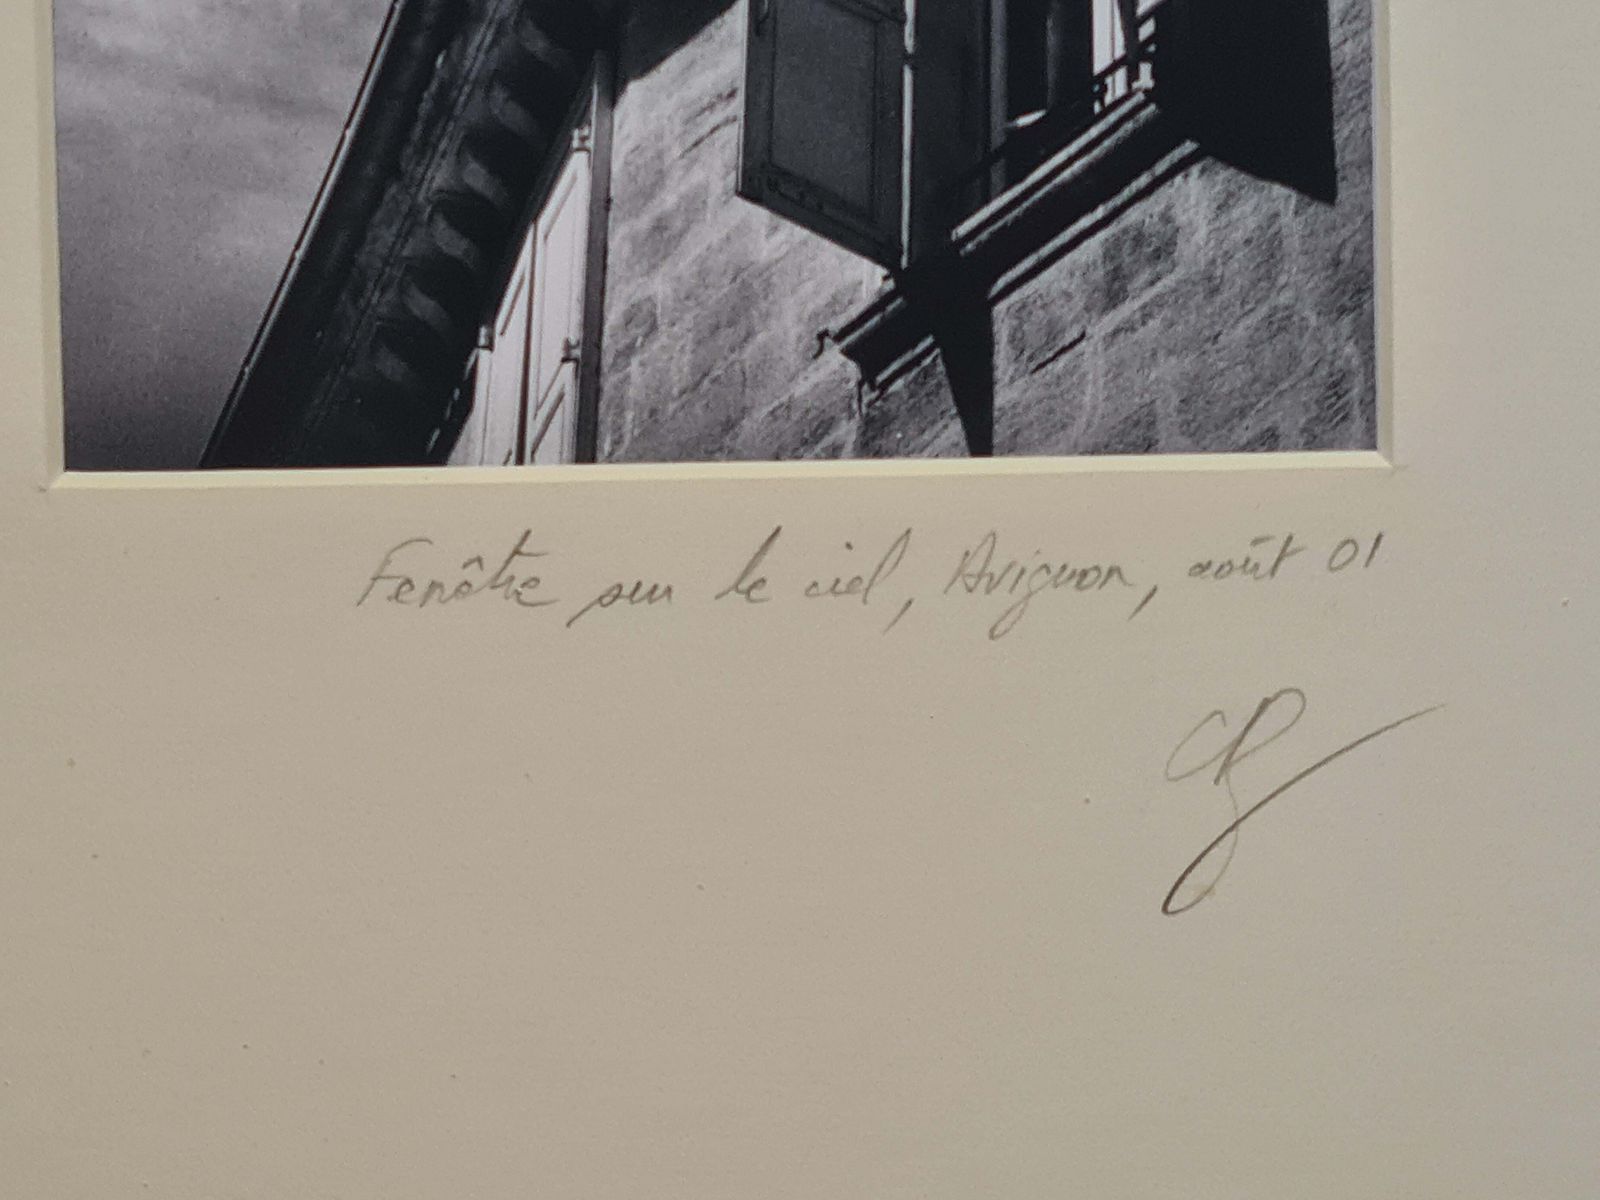 Fenêtre sur le ciel, Avignon, août 01